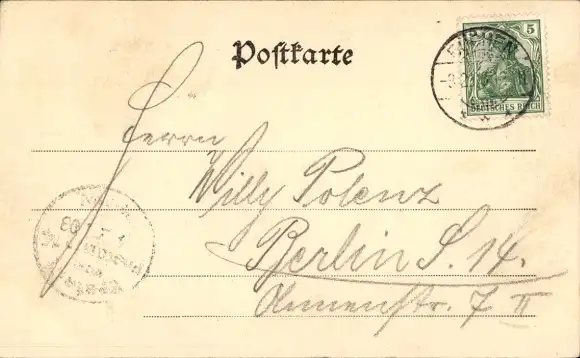 Postkarte
5
DEUTSCHES REICH
Herrn
Willy Polenz
Berlin S. 14.
Annenstr. 7 II